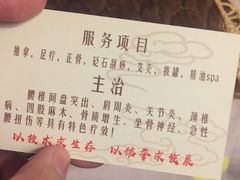 服务项目
推拿，足疗，正骨，砭石刮痧，艾灸，拔罐，精油spa
主治
腰椎间盘突出、肩周炎、关节炎、颈椎
病、四肢麻木、骨质增生、坐骨神经、急性
腰扭伤等具有特色疗效！
以技术求生存 以信誉求发展